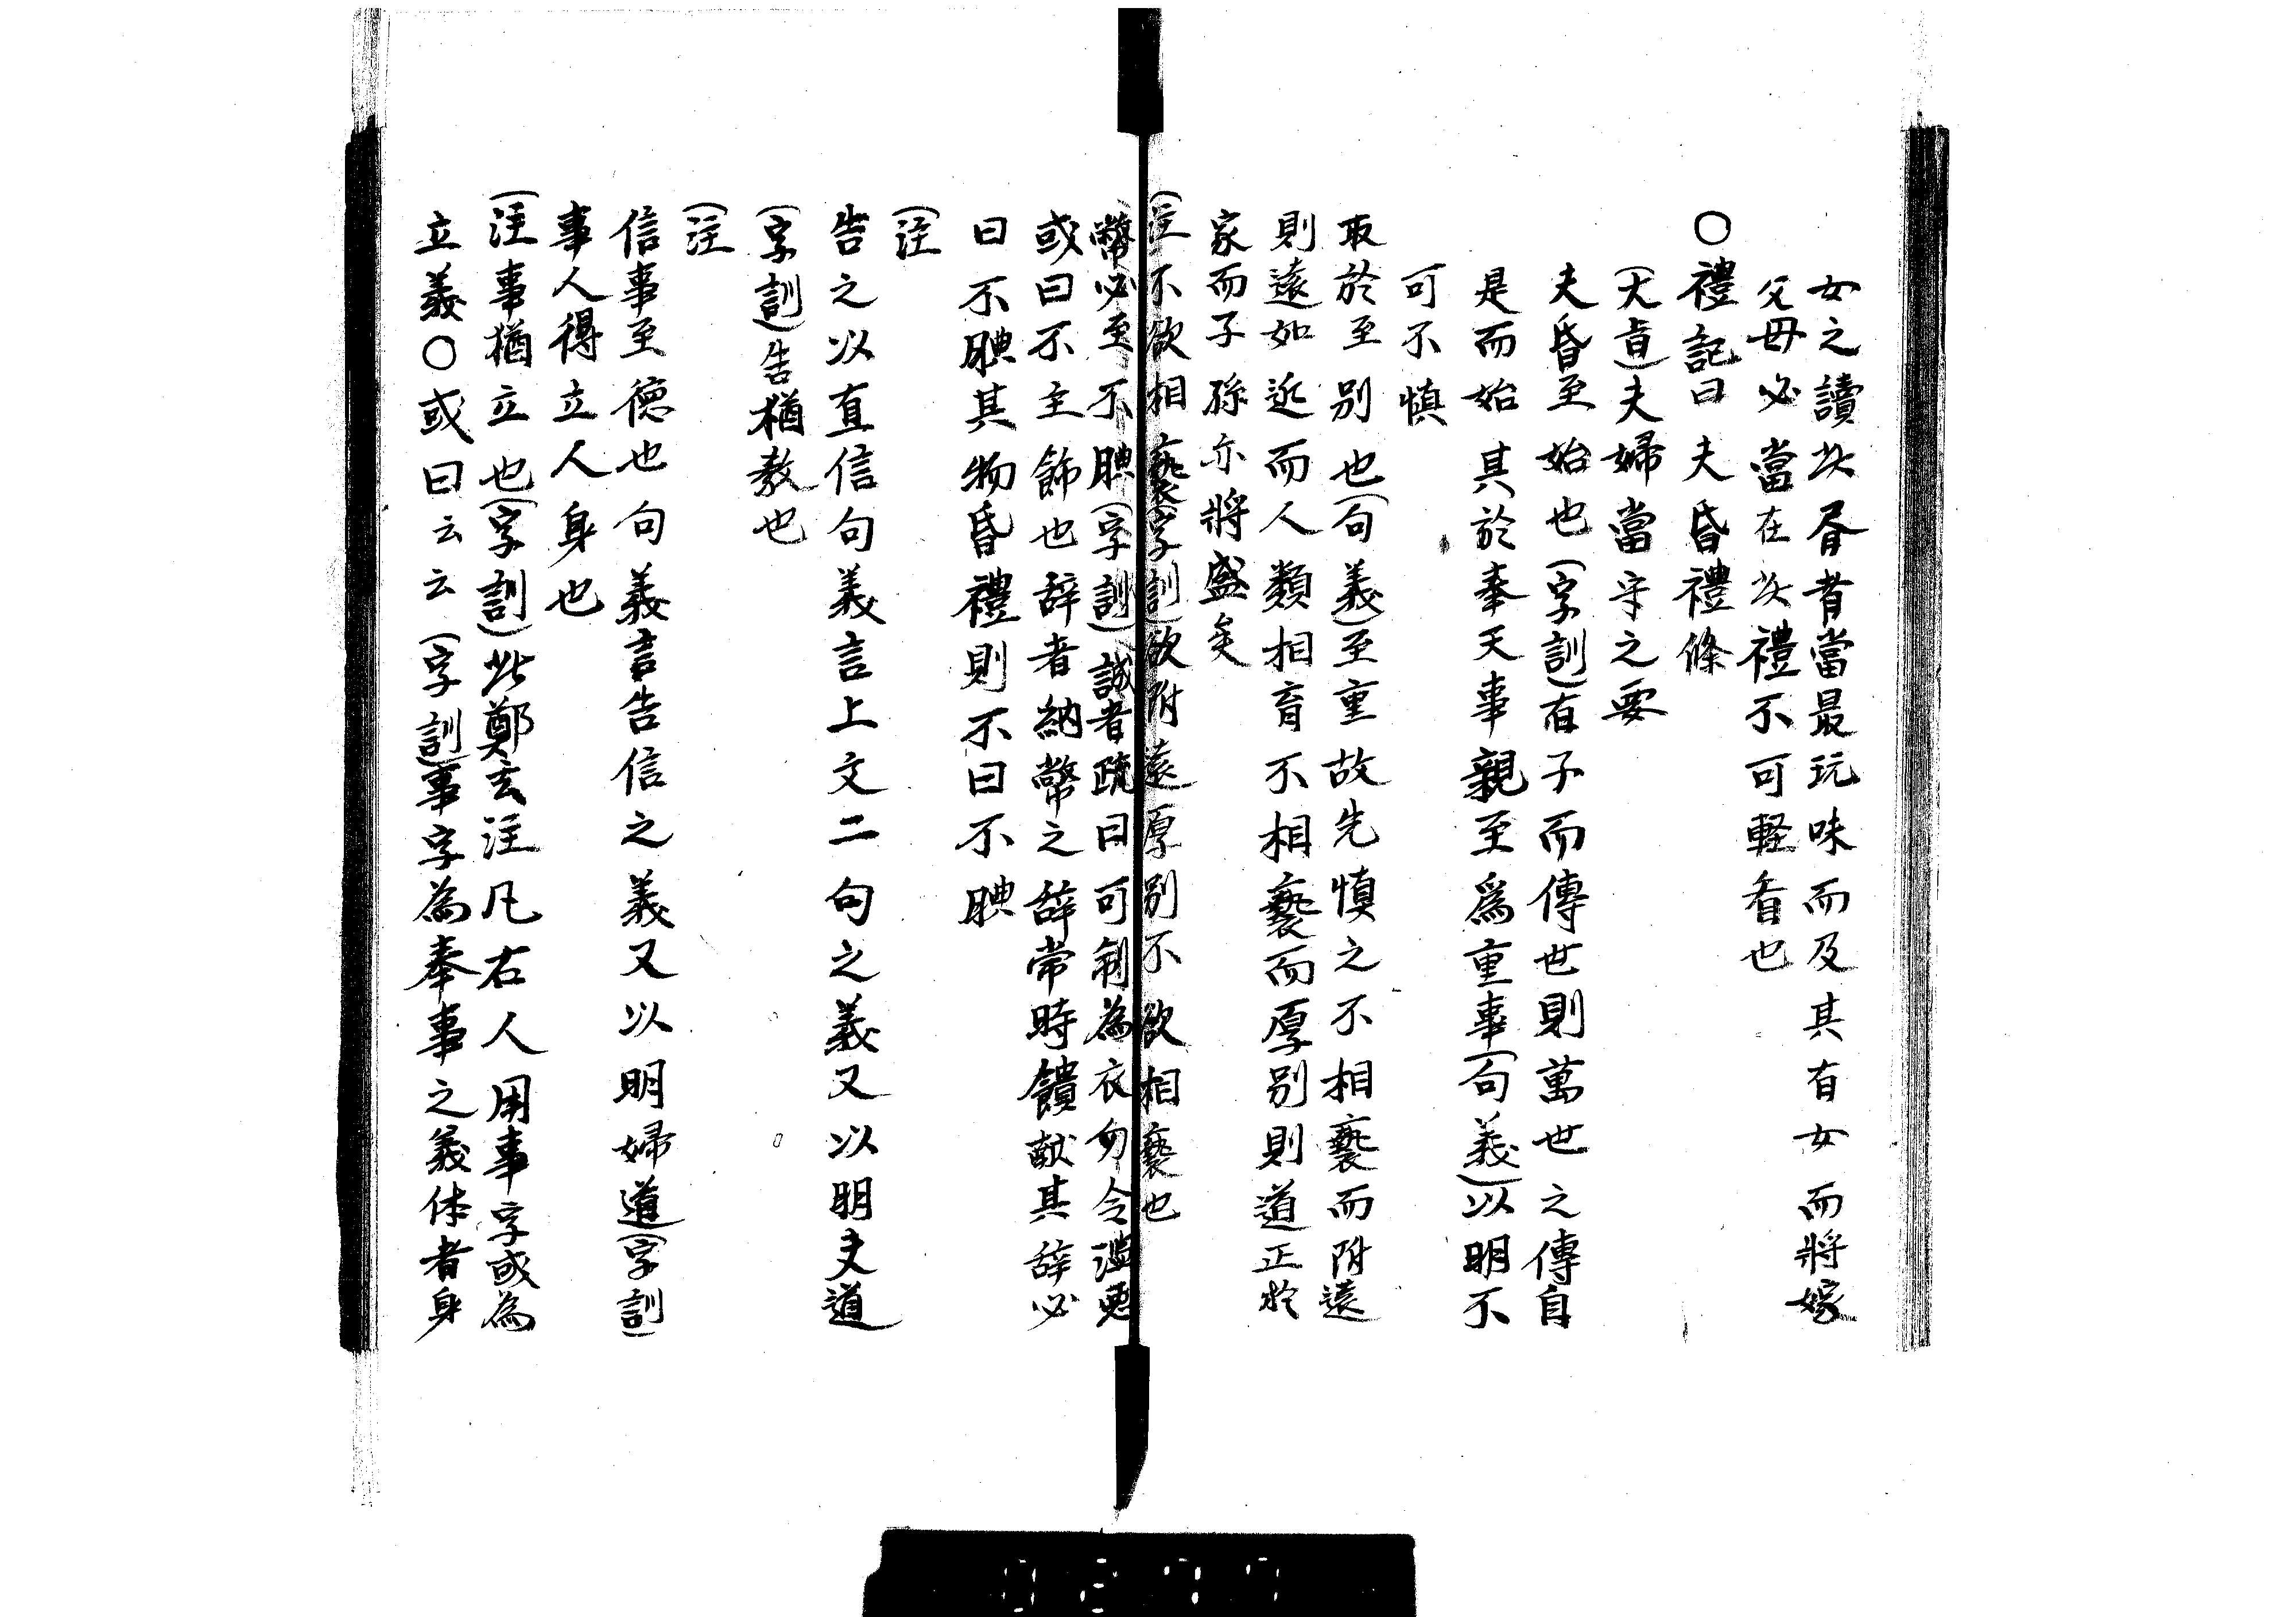 女之讀此者當最玩味而及其有女而將嫁
父母必當在此禮不可軽看也
〇禮記曰夫昏禮條
(大旨)夫婦當守之要
夫昏至始也(字訓)有子而傳世則萬世之傳自
是而始其於奉天事親至爲重事(句義)以明不
可不慎
取於至別也(句義)至重故先慎之不相褻而附遠
則遠如近而人類相育不相褻而厚別則道正於
家而子孫亦將盛矣
(注不欲相褻(字訓)欲附遠厚別不欲相褻也
幣必至不腆(字訓)誠者疏曰可制為衣勿令濫悪
或曰不主飾也辞者納幣之辞常時饋献其辞必
曰不腆其物昏禮則不曰不腆
(注
告之以直信句義言上文二句之義又以明夫道
(字訓)告猶教也
(注
信事至德也句義言告信之義又以明婦道(字訓)
事人得立人身也
(注事猶立也(字訓)此鄭玄注凡右人用事字或為
立義〇或曰云云(字訓)事字為奉事之義体者身